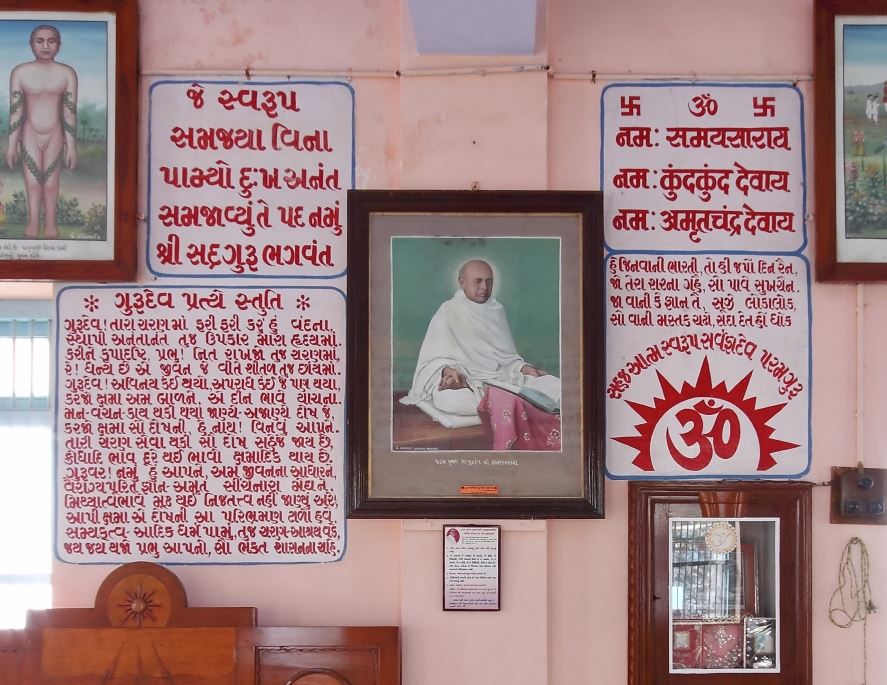 જે સ્વરૂપ
સમજ્યા વિના
પામ્યો દુઃખ અનંત
સમજાવ્યું તે પદ નમું
શ્રી સદ્ગુરૂ ભગવંત
卐 ૐ 卐
નમઃ સમયસારાય
નમઃ કુંદકુંદ દેવાય
નમઃ અમૃતચંદ્ર દેવાય
હું જિનવાની ભારતી, તો કી જપોં દિન રૈન,
જો તેરા શરના ગહૈ, સો પાવૈ સુખ ચૈન.
જા વાની કે જ્ઞાન તેં, સૂઝે લોકાલોક,
સો વાની મસ્તક ચઢો, સદા દેત હોં ધોક
સહજ આત્મ સ્વરૂપ સર્વજ્ઞદેવ પરમગુરૂ
ૐ
* ગુરૂદેવ પ્રત્યે સ્તુતિ *
ગુરૂદેવ! તારા ચરણમાં ફરી ફરી કરું હું વંદના,
સ્થાપી અનંતાનંત તુજ ઉપકાર મારા હૃદયમાં.
કરીને કૃપાદષ્ટિ, પ્રભુ! નિત રાખજો તુજ ચરણમાં,
રે! ધન્ય છે એ જીવન જે વીતે શીતળ તુજ છાંયમાં.
ગુરૂદેવ! અવિનય કંઈ થયો, અપરાધ કંઈ જે પણ થયા,
કરજો ક્ષમા અમ બાળને, એ દીન ભાવે યાચના.
મન-વચન-કાય થકી થયા જાણ્યે-અજાણ્યે દોષ જે,
કરજો ક્ષમા સૌ દોષની, હે નાથ! વિનવું આપને.
તારી ચરણ સેવા થકી સૌ દોષ સહેજે જાય છે,
ક્રોધાદિ ભાવ દૂર થઈ ભાવો ક્ષમાદિક થાય છે.
ગુરૂવર! નમું હું આપને, અમ જીવનના આધારને,
વૈરાગ્યપૂરિત જ્ઞાન-અમૃત સીંચનારા મેઘને.
મિથ્યાત્વભાવે મૂઢ થઈ નિજતત્ત્વ નહીં જાણ્યું અરે!
આપી ક્ષમા એ દોષની આ પરિભ્રમણ ટાળો હવે.
સમ્યક્ત્વ-આદિક ધર્મ પામું, તુજ ચરણ-આશ્રય વડે,
જય જય થજો પ્રભુ આપનો, સૌ ભક્ત શાસનના ચહે.